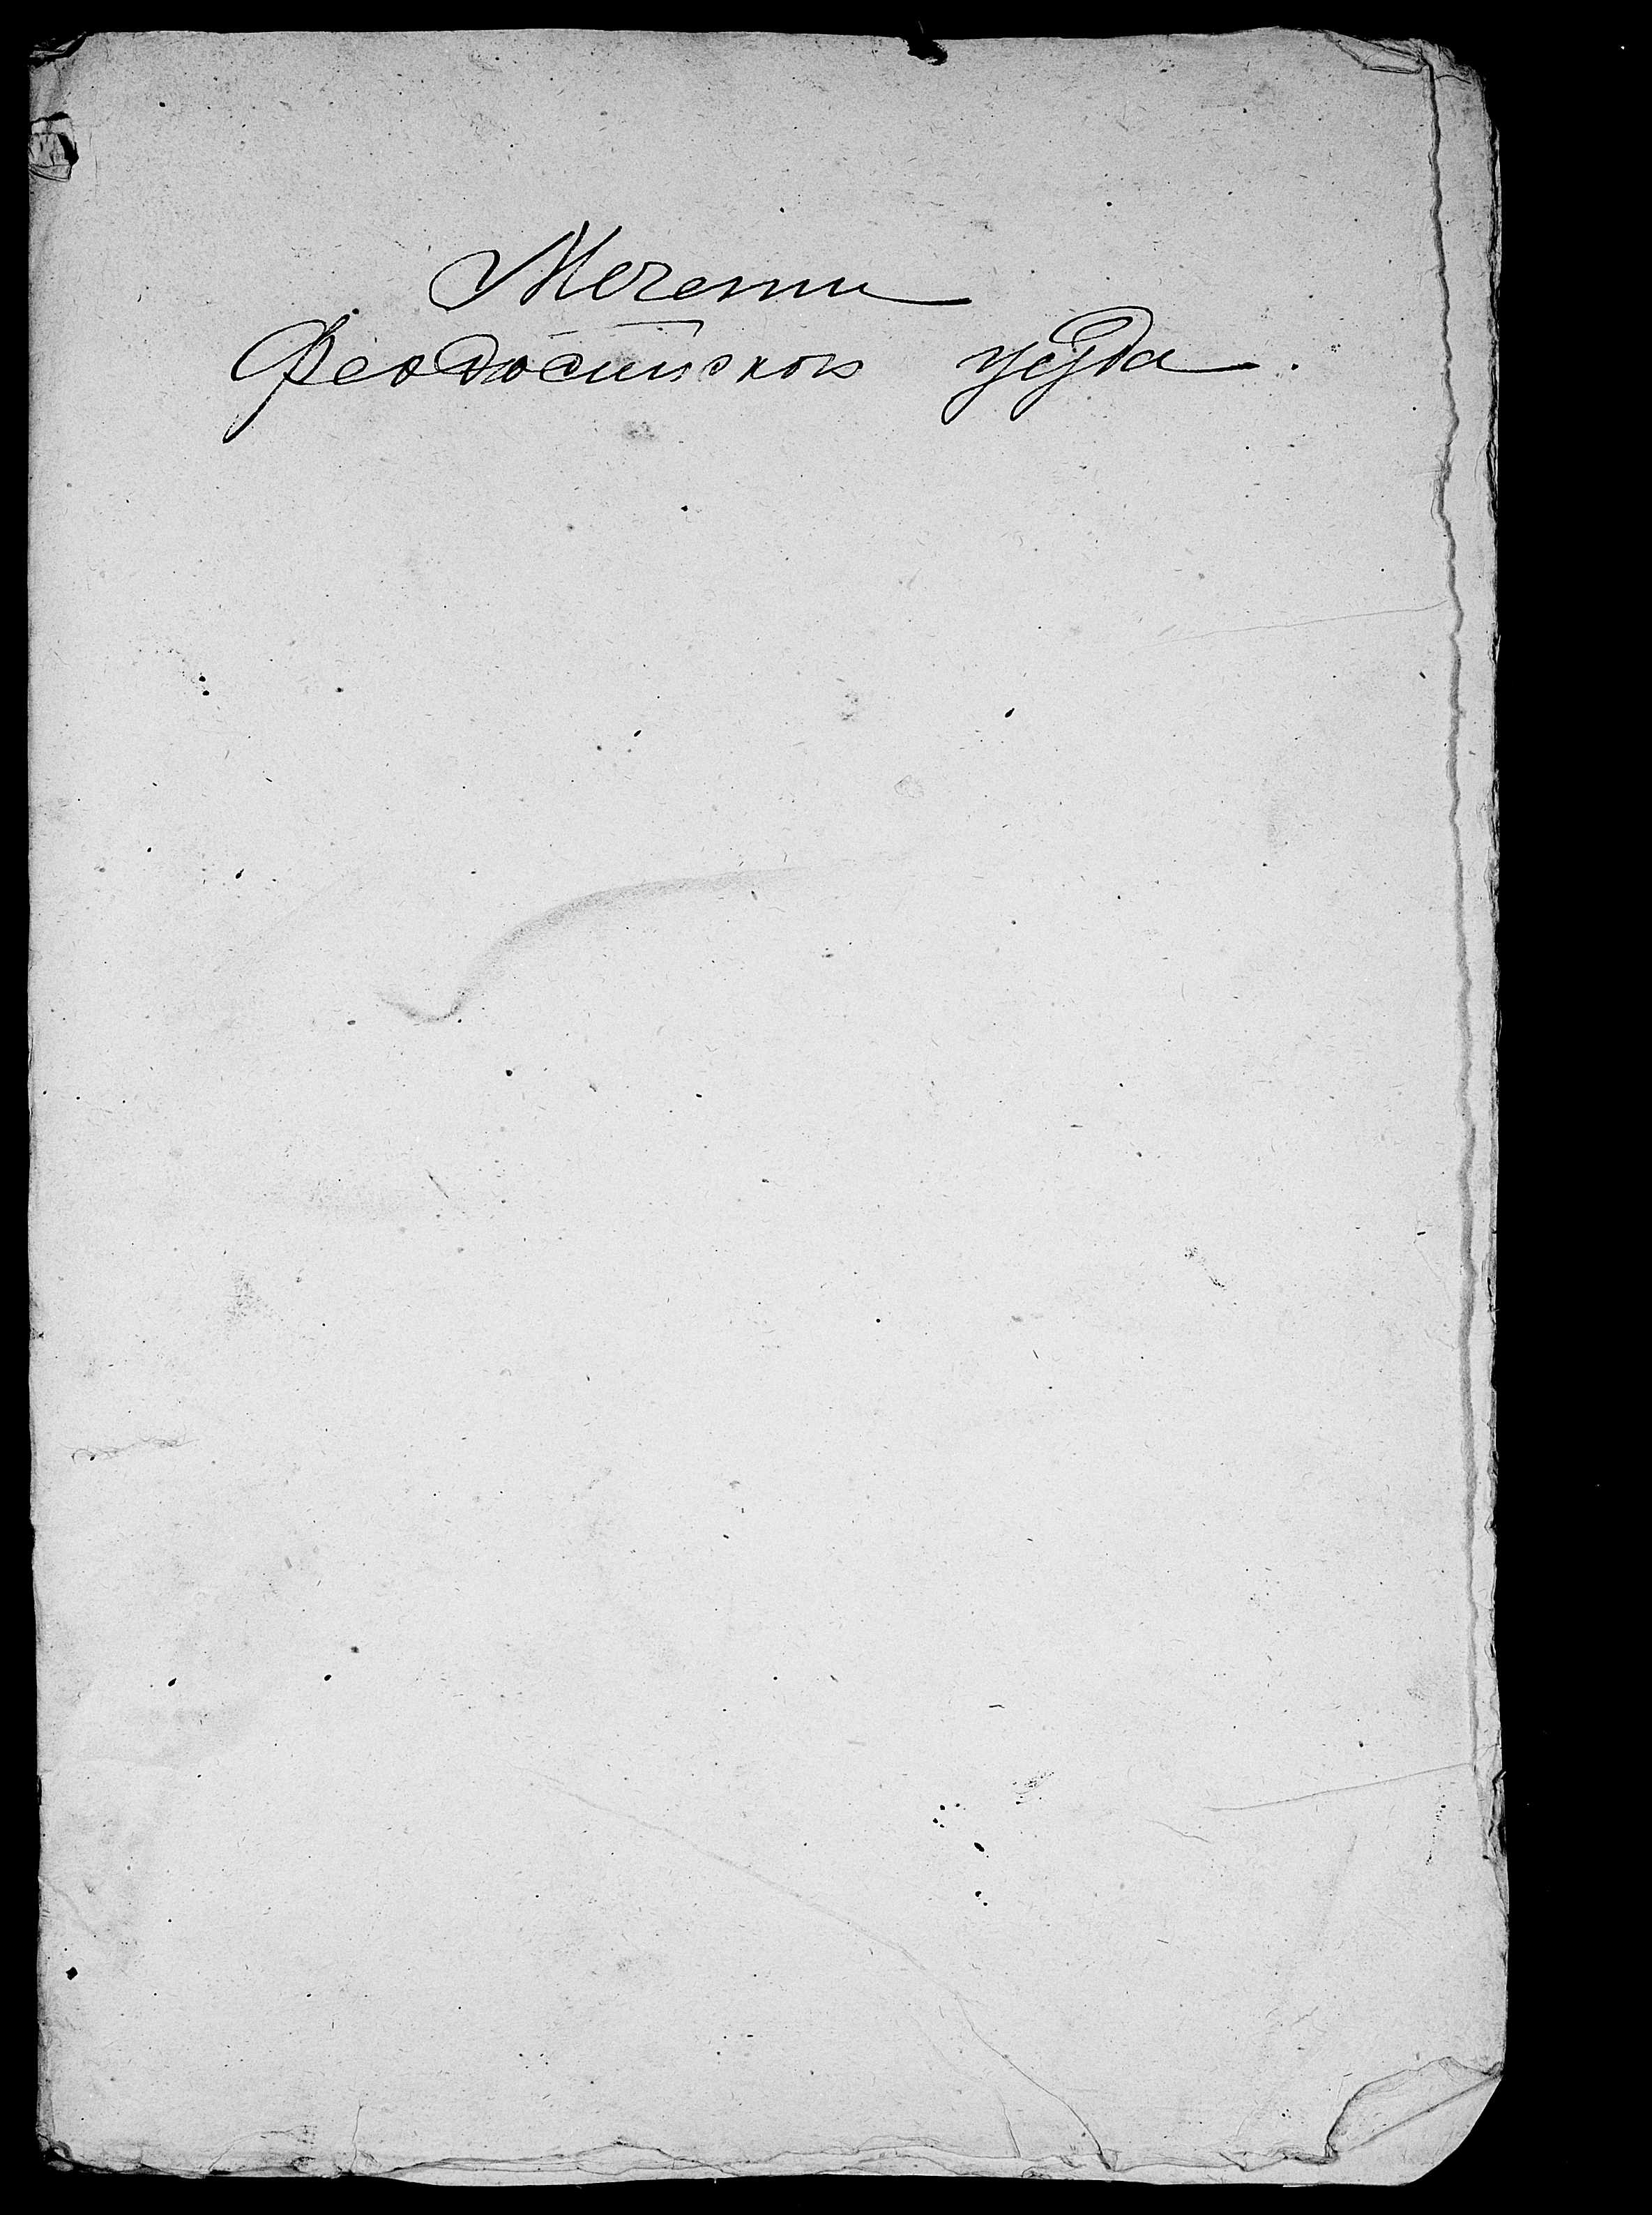 Мечети
Феодосийскаго уезда.